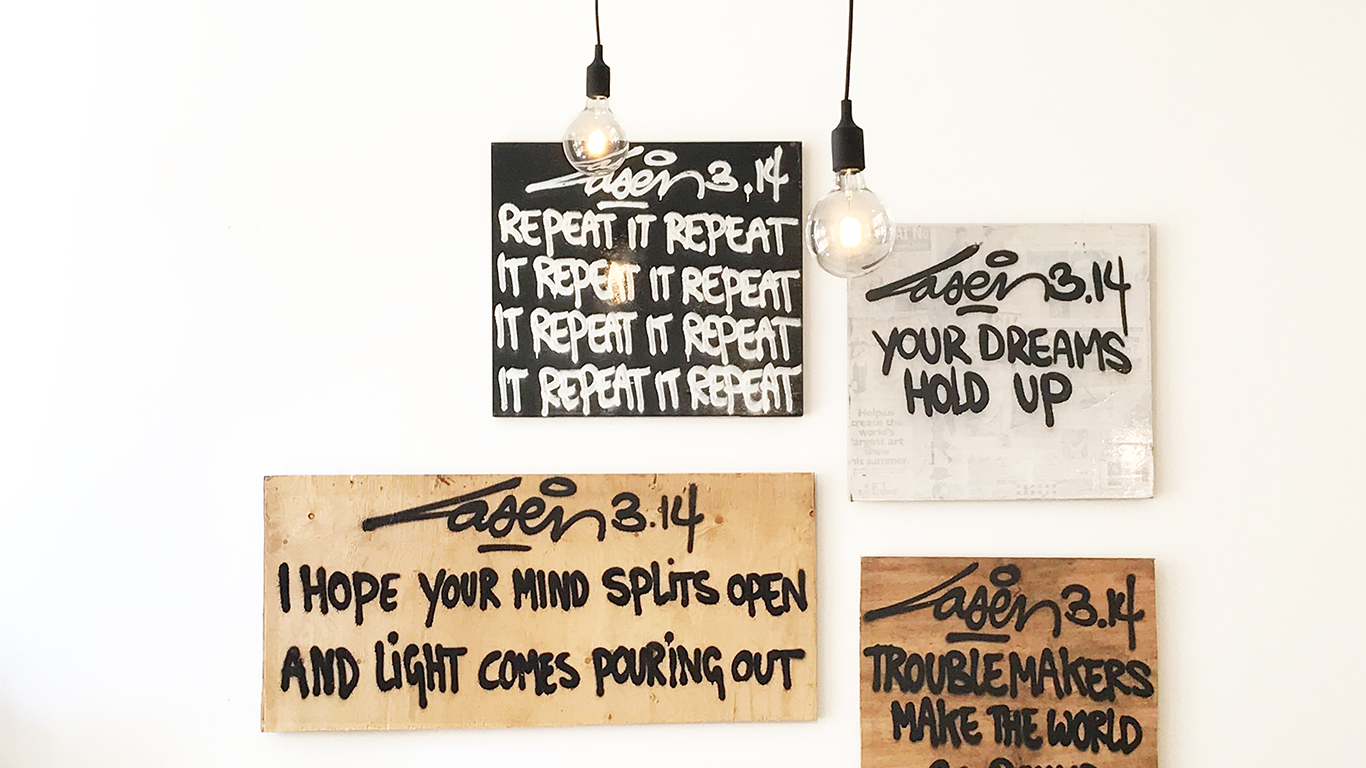 Laser 3.14
REPEAT IT REPEAT
IT REPEAT IT REPEAT
IT REPEAT IT REPEAT
IT REPEAT IT REPEAT
Laser 3.14
YOUR DREAMS
HOLD UP
Helpus
create the
world's
largest art
show
this summer.
Laser 3.14
I HOPE YOUR MIND SPLiTS OPEN
AND LiGHT COMES POURiNG OUT
Laser 3.14
TROUBLEMAKERS
MAKE THE WORLD